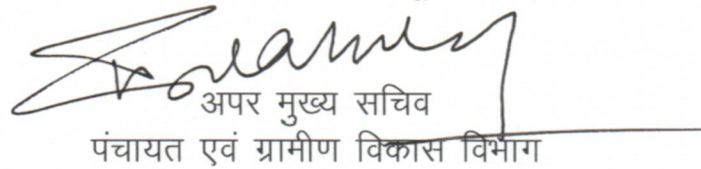 अपर मुख्य सचिव
पंचायत एवं ग्रामीण विकास विभाग